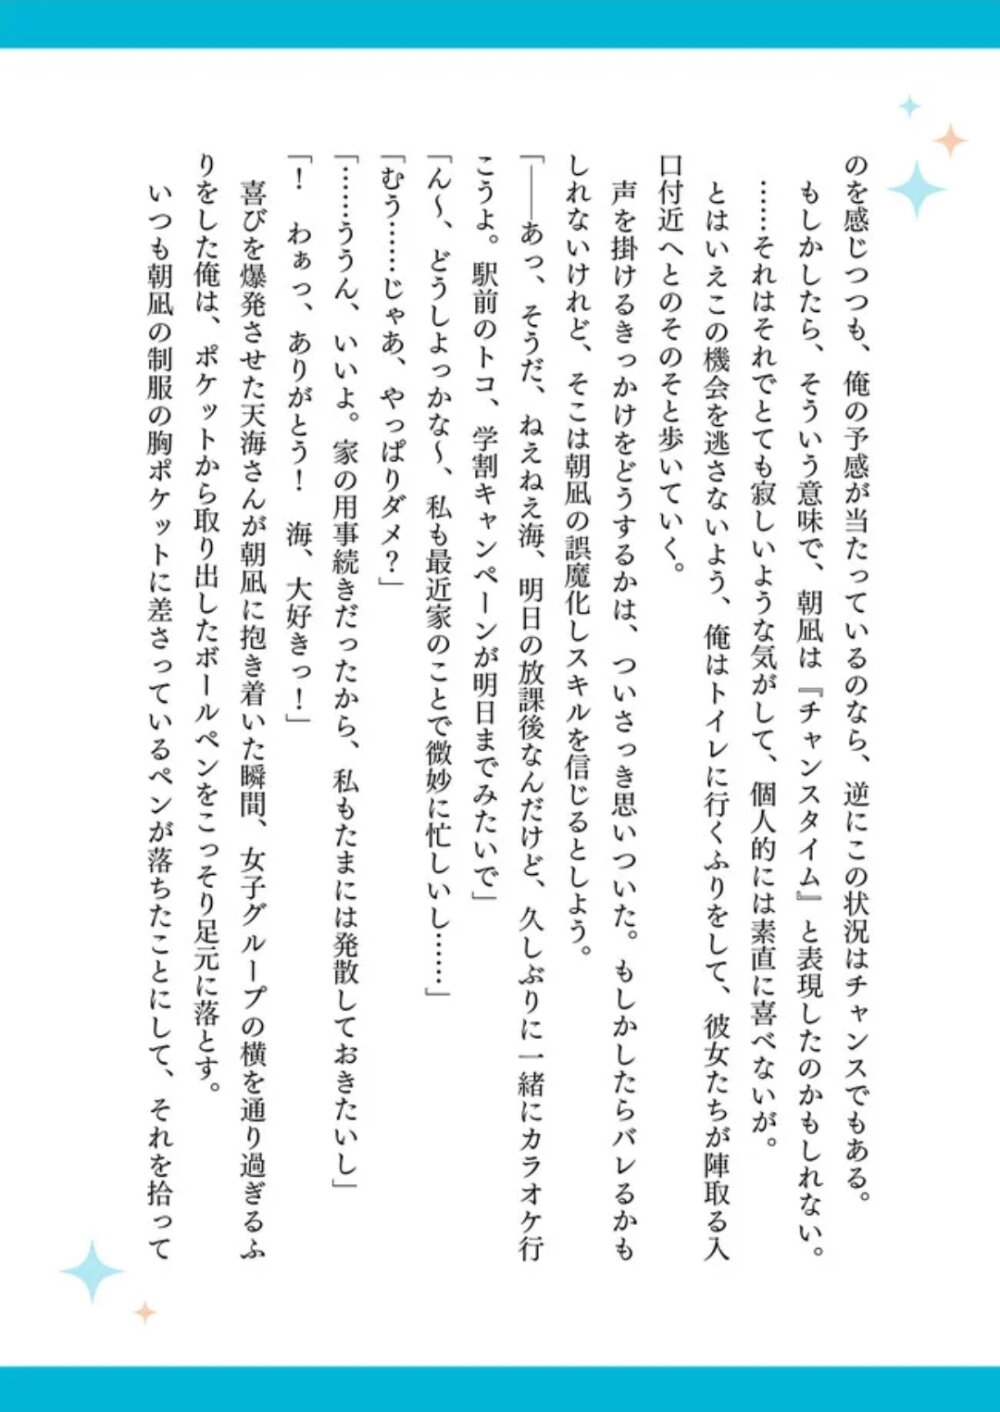 のを感じつつも、俺の予感が当たっているのなら、逆にこの状況はチャンスでもある。
もしかしたら、そういう意味で、朝凪は『チャンスタイム』と表現したのかもしれない。
……それはそれでとても寂しいような気がして、個人的には素直に喜べないが。
とはいえこの機会を逃さないよう、俺はトイレに行くふりをして、彼女たちが陣取る入
口付近へとのそのそと歩いていく。
声を掛けるきっかけをどうするかは、ついさっき思いついた。もしかしたらバレるかも
しれないけれど、そこは朝凪の誤魔化しスキルを信じるとしよう。
「――あっ、そうだ、ねえねえ海、明日の放課後なんだけど、久しぶりに一緒にカラオケ行
こうよ。駅前のトコ、学割キャンペーンが明日までみたいで」
「ん～、どうしよっかな～、私も最近家のことで微妙に忙しいし……」
「むう……じゃあ、やっぱりダメ？」
「……ううん、いいよ。家の用事続きだったから、私もたまには発散しておきたいし」
「！　わぁっ、ありがとう！　海、大好きっ！」
喜びを爆発させた天海さんが朝凪に抱き着いた瞬間、女子グループの横を通り過ぎるふ
りをした俺は、ポケットから取り出したボールペンをこっそり足元に落とす。
いつも朝凪の制服の胸ポケットに差さっているペンが落ちたことにして、それを拾って